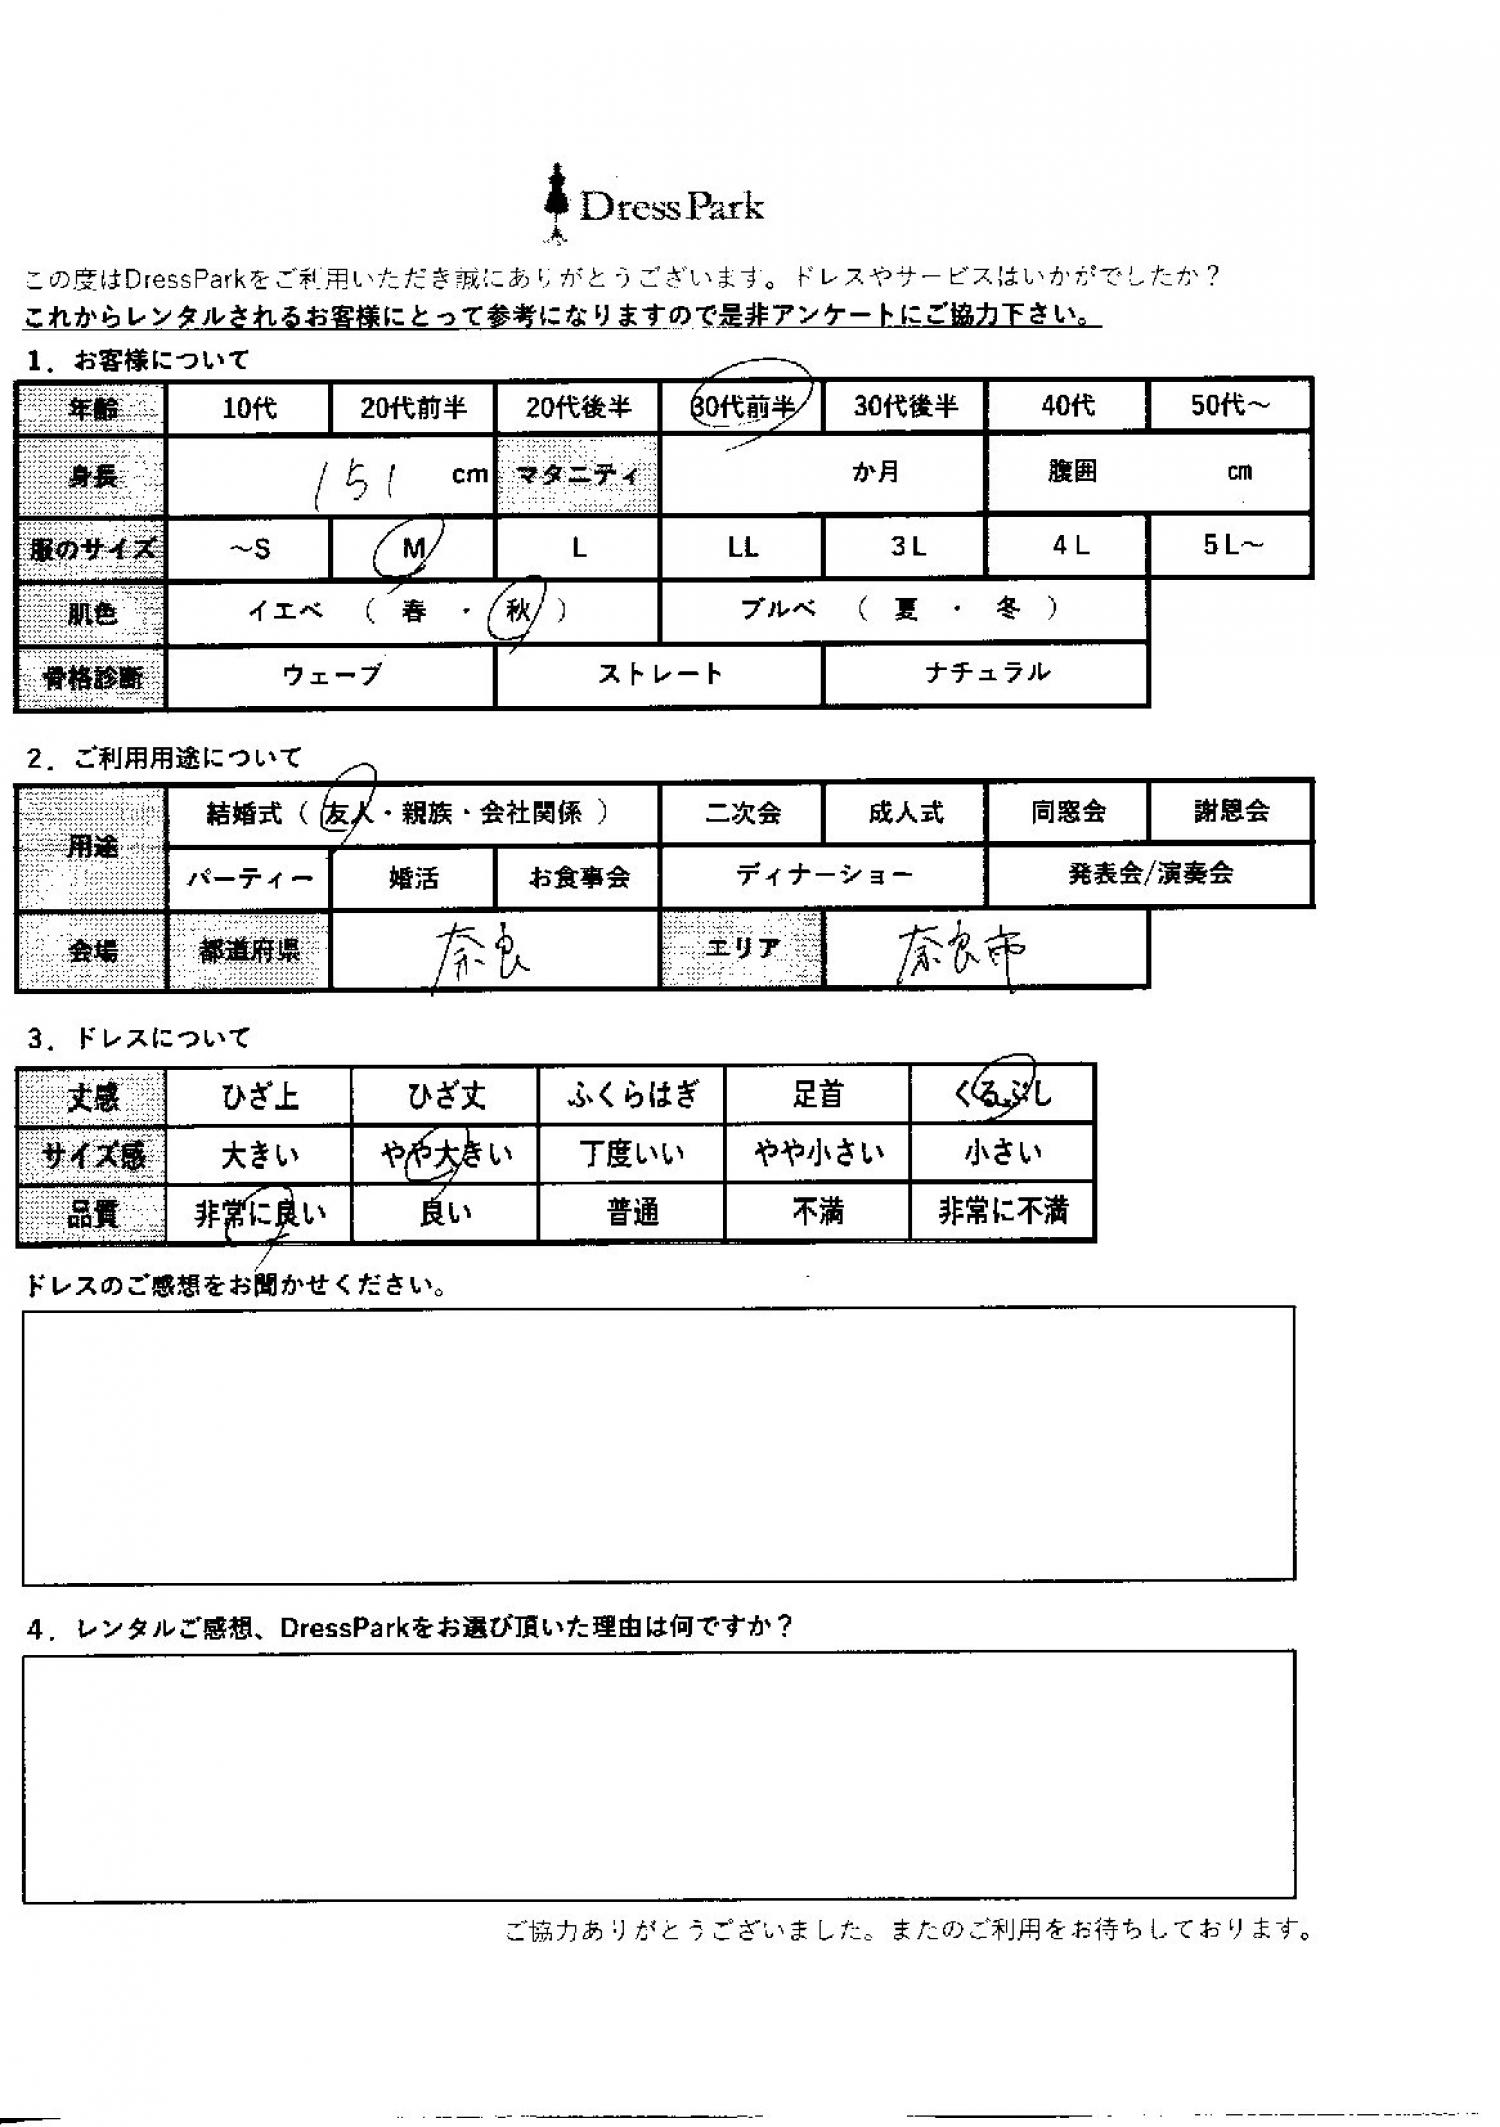 Dress Park
この度はDressParkをご利用いただき誠にありがとうございます。ドレスやサービスはいかがでしたか？
これからレンタルされるお客様にとって参考になりますので是非アンケートにご協力下さい。
1．お客様について
年齢 10代 20代前半 20代後半 30代前半 30代後半 40代 50代～
身長 151 cm マタニティ か月 腹囲 cm
服のサイズ ～S M L LL 3L 4L 5L～
肌色 イエベ（ 春 ・ 秋 ） ブルベ（ 夏 ・ 冬 ）
骨格診断 ウェーブ ストレート ナチュラル
2．ご利用用途について
用途 結婚式（ 友人・親族・会社関係 ） 二次会 成人式 同窓会 謝恩会
パーティー 婚活 お食事会 ディナーショー 発表会/演奏会
会場 都道府県 奈良 エリア 奈良市
3．ドレスについて
丈感 ひざ上 ひざ丈 ふくらはぎ 足首 くるぶし
サイズ感 大きい やや大きい 丁度いい やや小さい 小さい
品質 非常に良い 良い 普通 不満 非常に不満
ドレスのご感想をお聞かせください。
4．レンタルご感想、DressParkをお選び頂いた理由は何ですか？
ご協力ありがとうございました。またのご利用をお待ちしております。